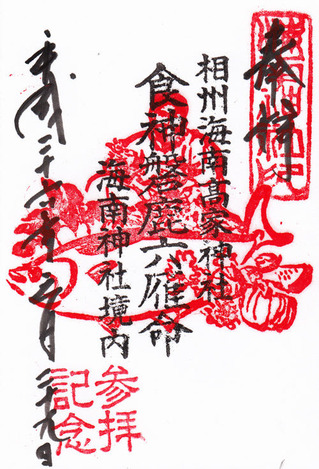 奉拝
相州海南高家神社
食神磐鹿六雁命
海南神社境内
平成二十六年五月二十九日
参拝
記念